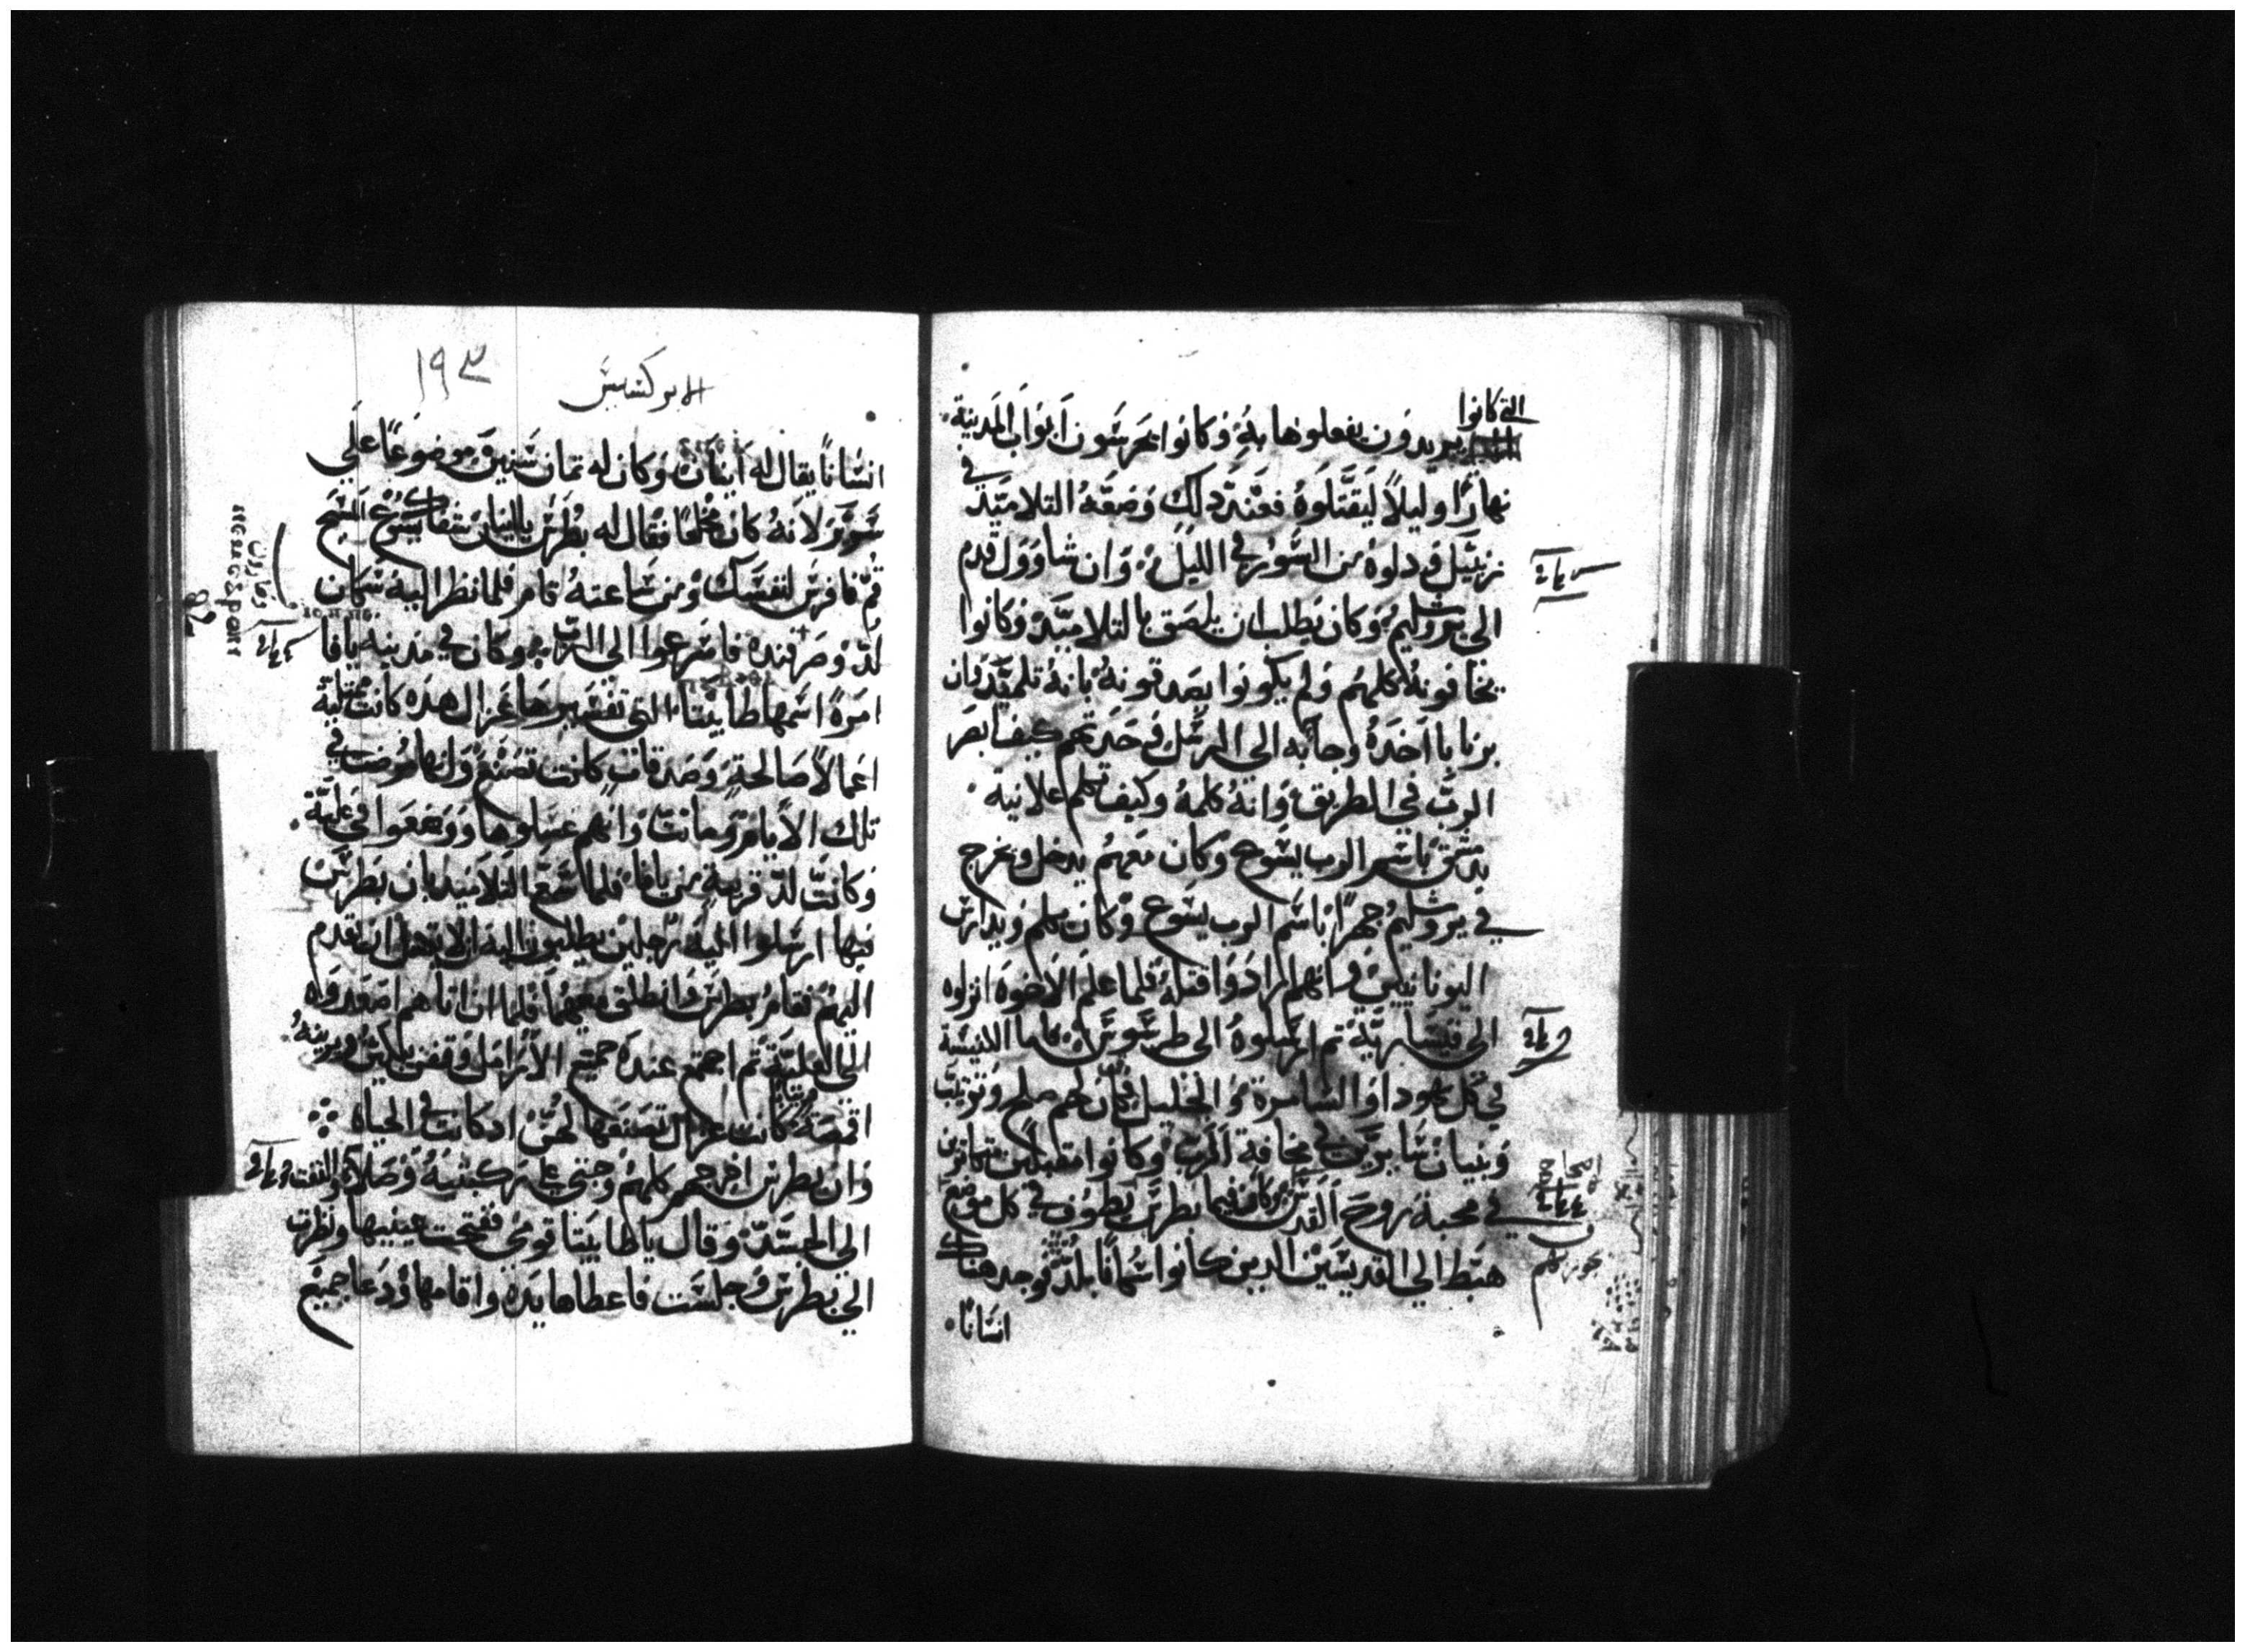 التي كانوا
يريدون يفعلوها به وكانوا يحرسون ابواب المدينة
نهارًا وليلاً ليقتلوه فعند ذلك وضعه التلاميد في
زنبيل ودلوه من السور في الليل وان شاوول قدم
الى يروشليم وكان يطلب ان يلصق بالتلاميد وكانوا
يخافونه كلهم ولم يكونوا يصدقونه بانه تلميد وان
برنابا اخده وجا به الى الرسل وحدتهم كيف ابصر
الرب في الطريق وانه كلمه وكيف تكلم علانية
بدمشق باسم الرب يسوع وكان معهم يدخل ويخرج
في يروشليم جهرًا باسم الرب يسوع وكان يكلم ويدارس
اليونانيين وانهم ارادوا قتله فلما علم الاخوة انزلوه
الى قيسارية تم ارسلوه الى طرسوس فاما الكنيسة
في كل يهودا والسامرة والجليل فكان لهم سلم
وبنيان سايرين في مخافة الرب وكانوا
في محبة روح القدس وكان فيما بطرس يطوف في كل موضع
هبط الى القديسين الدين كانوا سكانًا بلد فوجد هناك
انسانًا
١٩٣
الابركسيس
انسانًا يقال له اينياس وكان له تمان سنين موضوعًا على
سرير لانه كان مخلعًا فقال له بطرس يا اينياس شفاك يسوع المسيح
قم فافرش لنفسك ومن ساعته قام فلما نظر اليه سكان
لد وصرفنده فاسرعوا الى الرب وكان في مدينة يافا
امرة اسمها طابيتا التي تفسيرها غزال هده كانت ممتلية
اعمالاً صالحة وصدقات كانت تصنع وانها مرضت في
تلك الايام وماتت وانهم غسلوها ووضعوها في علية
وكانت لد قريبة من يافا فلما سمع التلاميد بان بطرس
فيها ارسلوا اليه رجلين يطلبون اليه ان لا يتمهل ان يقدم
اليهم فقام بطرس وانطلق معهما فلما ان اتاهم اصعدوه
الى العلية تم اجتمع عنده جميع الارامل وقفن يبكين ويرينه
اقمصة كانت غزال تصنعها لهن اد كانت في الحياة
وان بطرس اخرجهم كلهم وجتى على ركبتيه وصلا والتفت
الى الجسد وقال يا طابيتا قومي ففتحت عينيها ونظرت
الى بطرس وجلست فاعطاها يده واقامها ودعا جميع